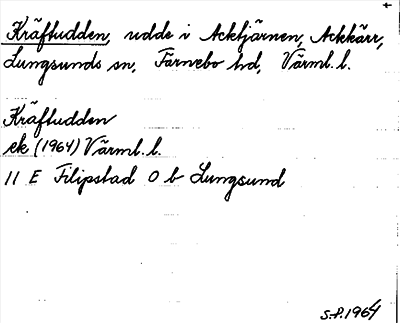 Kräftudden, udde i Acktjärnen, Ackkärr,
Lungsunds sn, Färnebo hd, Värml. l.
Kräftudden
ek (1964) Värml. l.
11 E Filipstad 0 b Lungsund
S.P. 1964